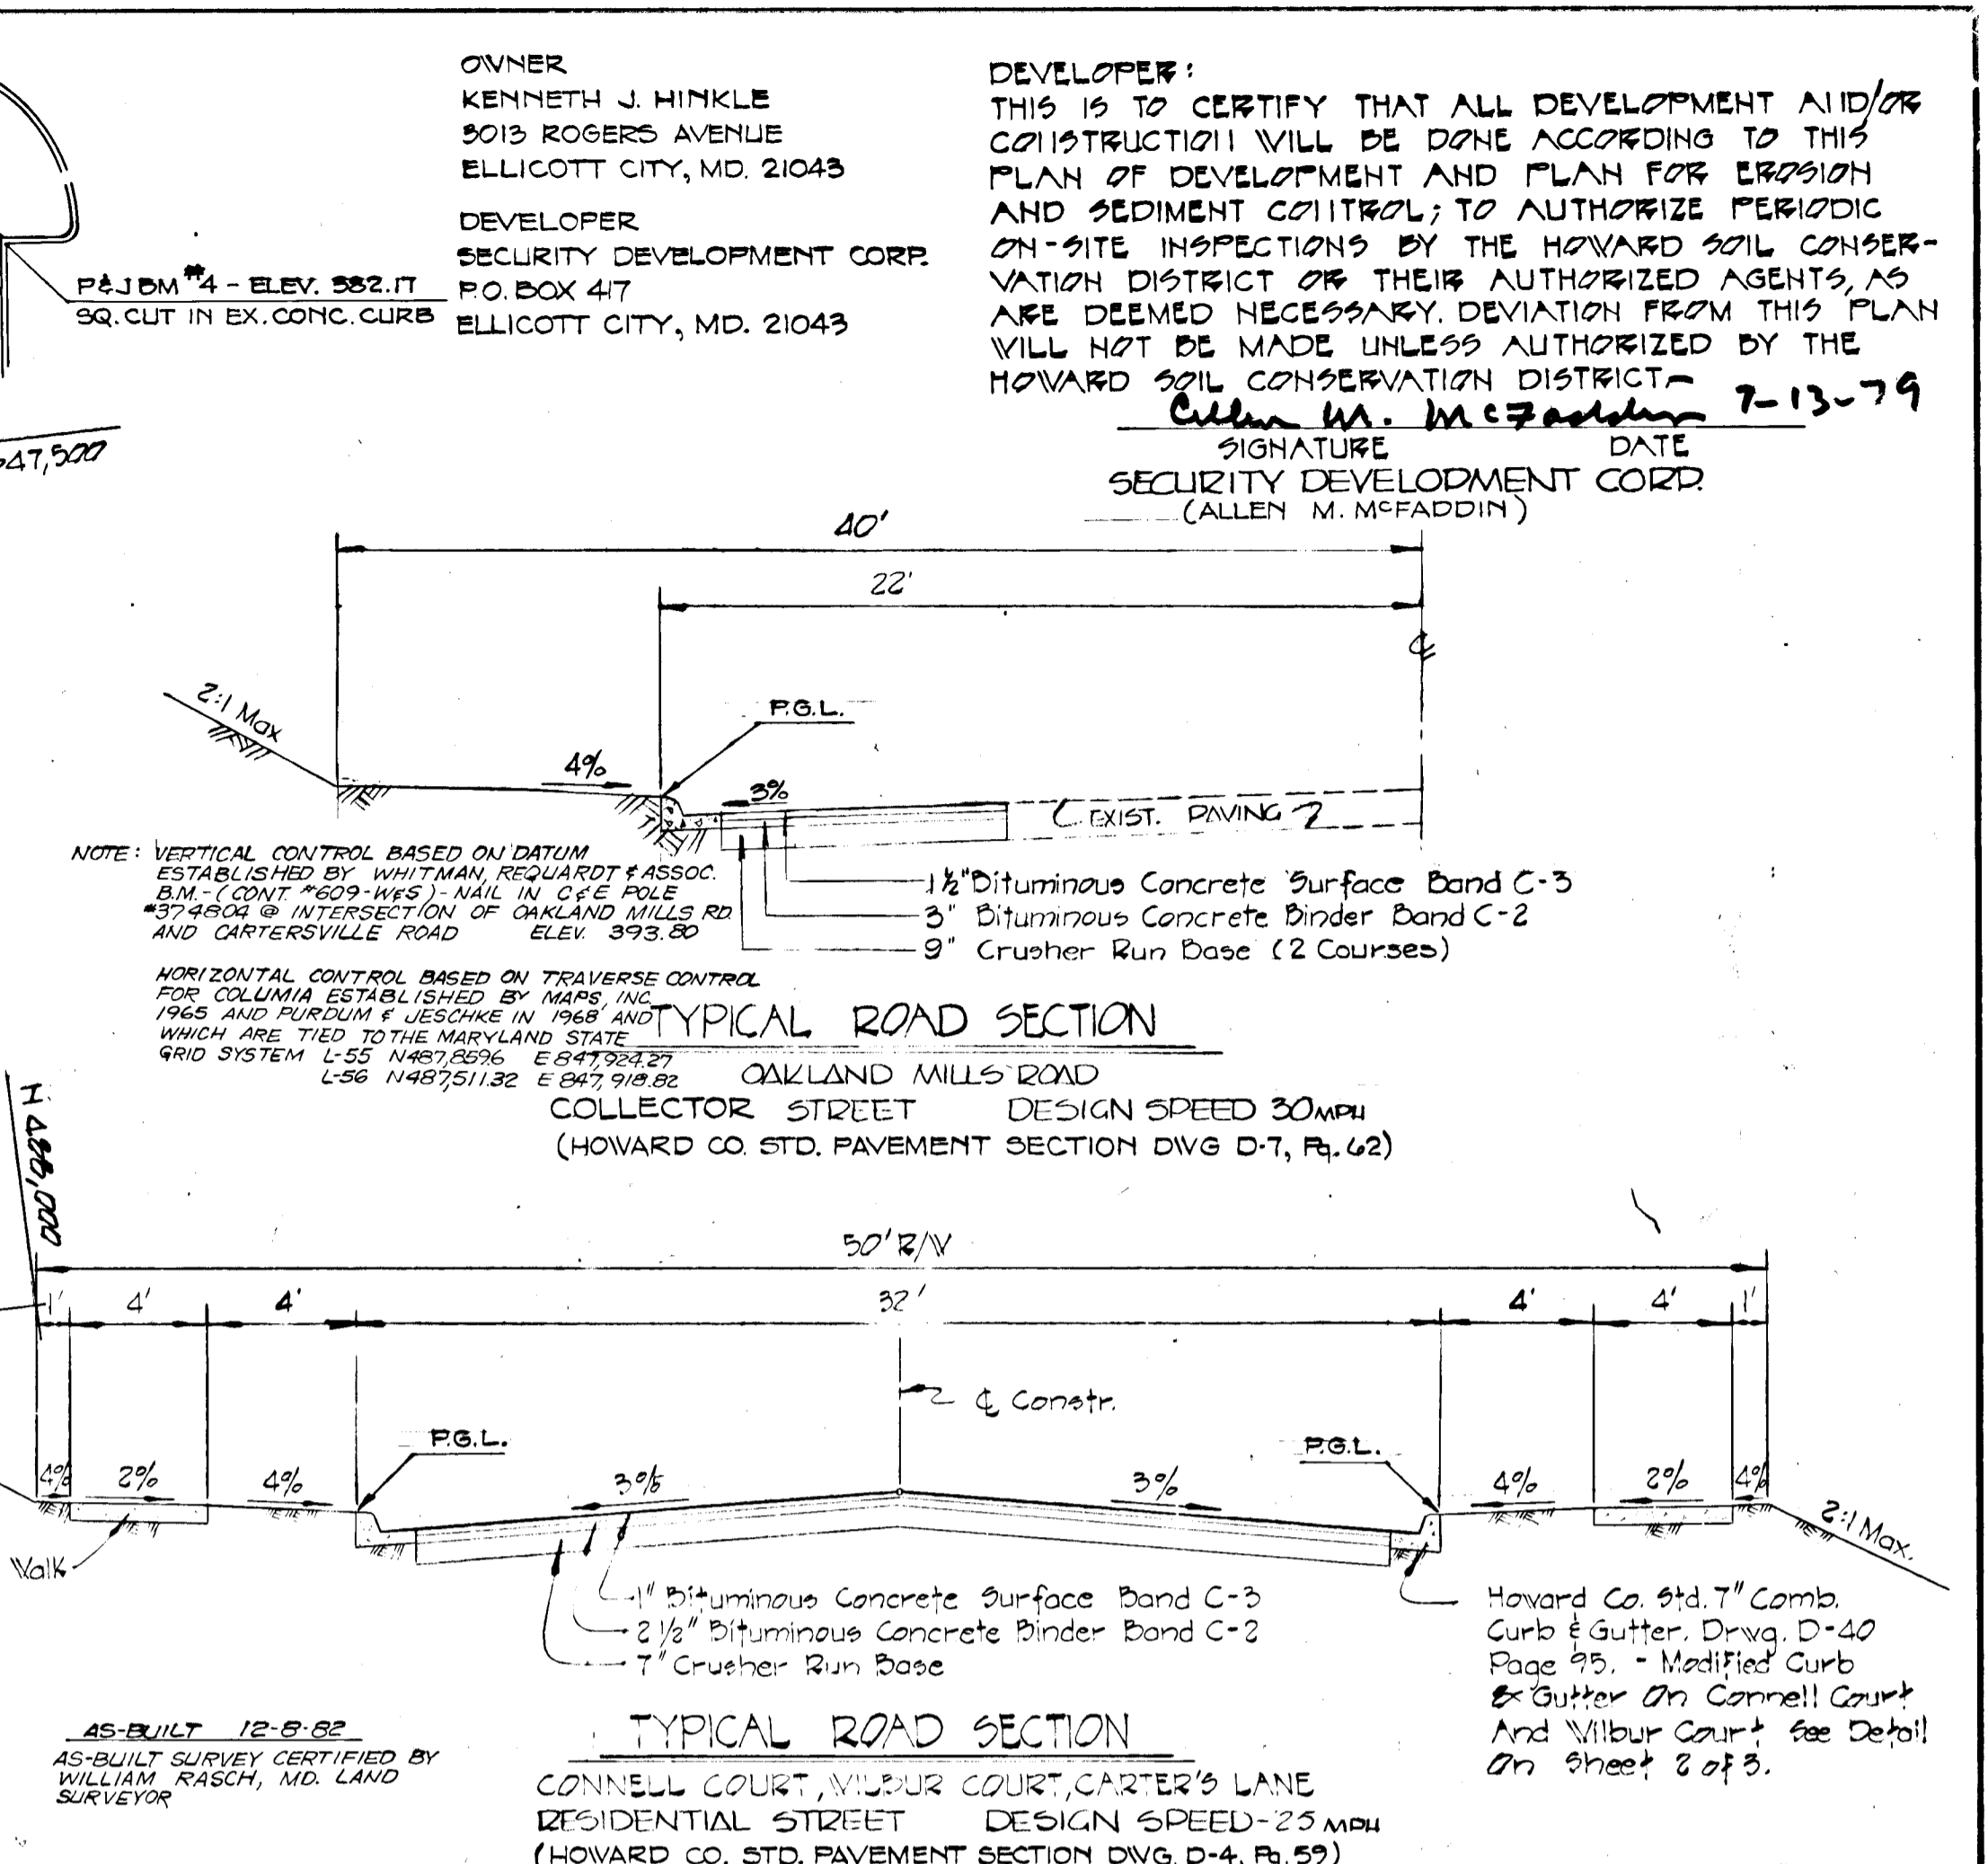 OWNER
KENNETH J. HINKLE
3013 ROGERS AVENUE
ELLICOTT CITY, MD. 21043
DEVELOPER
SECURITY DEVELOPMENT CORP.
P.O. BOX 417
ELLICOTT CITY, MD. 21043
P&J BM #4 - ELEV. 382.17
SQ. CUT IN EX. CONC. CURB
DEVELOPER:
THIS IS TO CERTIFY THAT ALL DEVELOPMENT AND/OR
CONSTRUCTION WILL BE DONE ACCORDING TO THIS
PLAN OF DEVELOPMENT AND PLAN FOR EROSION
AND SEDIMENT CONTROL; TO AUTHORIZE PERIODIC
ON-SITE INSPECTIONS BY THE HOWARD SOIL CONSER-
VATION DISTRICT OR THEIR AUTHORIZED AGENTS, AS
ARE DEEMED NECESSARY. DEVIATION FROM THIS PLAN
WILL NOT BE MADE UNLESS AUTHORIZED BY THE
HOWARD SOIL CONSERVATION DISTRICT
Allen M. McFaddin 7-13-79
SIGNATURE DATE
SECURITY DEVELOPMENT CORP.
(ALLEN M. McFADDIN)
47,500
40'
22'
℄
2:1 Max
P.G.L.
4%
3%
EXIST. PAVING
1½" Bituminous Concrete Surface Band C-3
3" Bituminous Concrete Binder Band C-2
9" Crusher Run Base (2 Courses)
NOTE: VERTICAL CONTROL BASED ON DATUM
ESTABLISHED BY WHITMAN, REQUARDT & ASSOC.
B.M.-(CONT. #609-W&S)-NAIL IN C&E POLE
#374804 @ INTERSECTION OF OAKLAND MILLS RD.
AND CARTERSVILLE ROAD ELEV. 393.80
HORIZONTAL CONTROL BASED ON TRAVERSE CONTROL
FOR COLUMIA ESTABLISHED BY MAPS, INC.
1965 AND PURDUM & JESCHKE IN 1968 AND
WHICH ARE TIED TO THE MARYLAND STATE
GRID SYSTEM L-55 N487,859.6 E847,924.27
L-56 N487,511.32 E847,918.82
TYPICAL ROAD SECTION
OAKLAND MILLS ROAD
COLLECTOR STREET DESIGN SPEED 30 MPH
(HOWARD CO. STD. PAVEMENT SECTION DWG D-7, Pg. 62)
N 488,000
50' R/W
1' 4' 4' 32' 4' 4' 1'
℄ Constr.
P.G.L. P.G.L.
4% 2% 4% 3% 3% 4% 2% 4%
2:1 Max.
Walk
1" Bituminous Concrete Surface Band C-3
2 1/2" Bituminous Concrete Binder Band C-2
7" Crusher Run Base
Howard Co. Std. 7" Comb.
Curb & Gutter. Drwg. D-40
Page 95. - Modified Curb
& Gutter On Connell Court
And Wilbur Court See Detail
On Sheet 2 of 3.
AS-BUILT 12-8-82
AS-BUILT SURVEY CERTIFIED BY
WILLIAM RASCH, MD. LAND
SURVEYOR
TYPICAL ROAD SECTION
CONNELL COURT, WILBUR COURT, CARTER'S LANE
RESIDENTIAL STREET DESIGN SPEED-25 MPH
(HOWARD CO. STD. PAVEMENT SECTION DWG. D-4, Pg. 59)